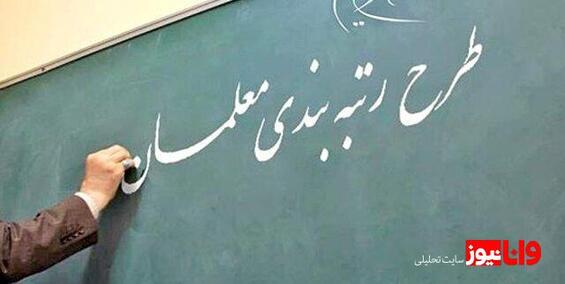 طرح رتبه بندی معلمان
وانا نیوز سایت تحلیلی